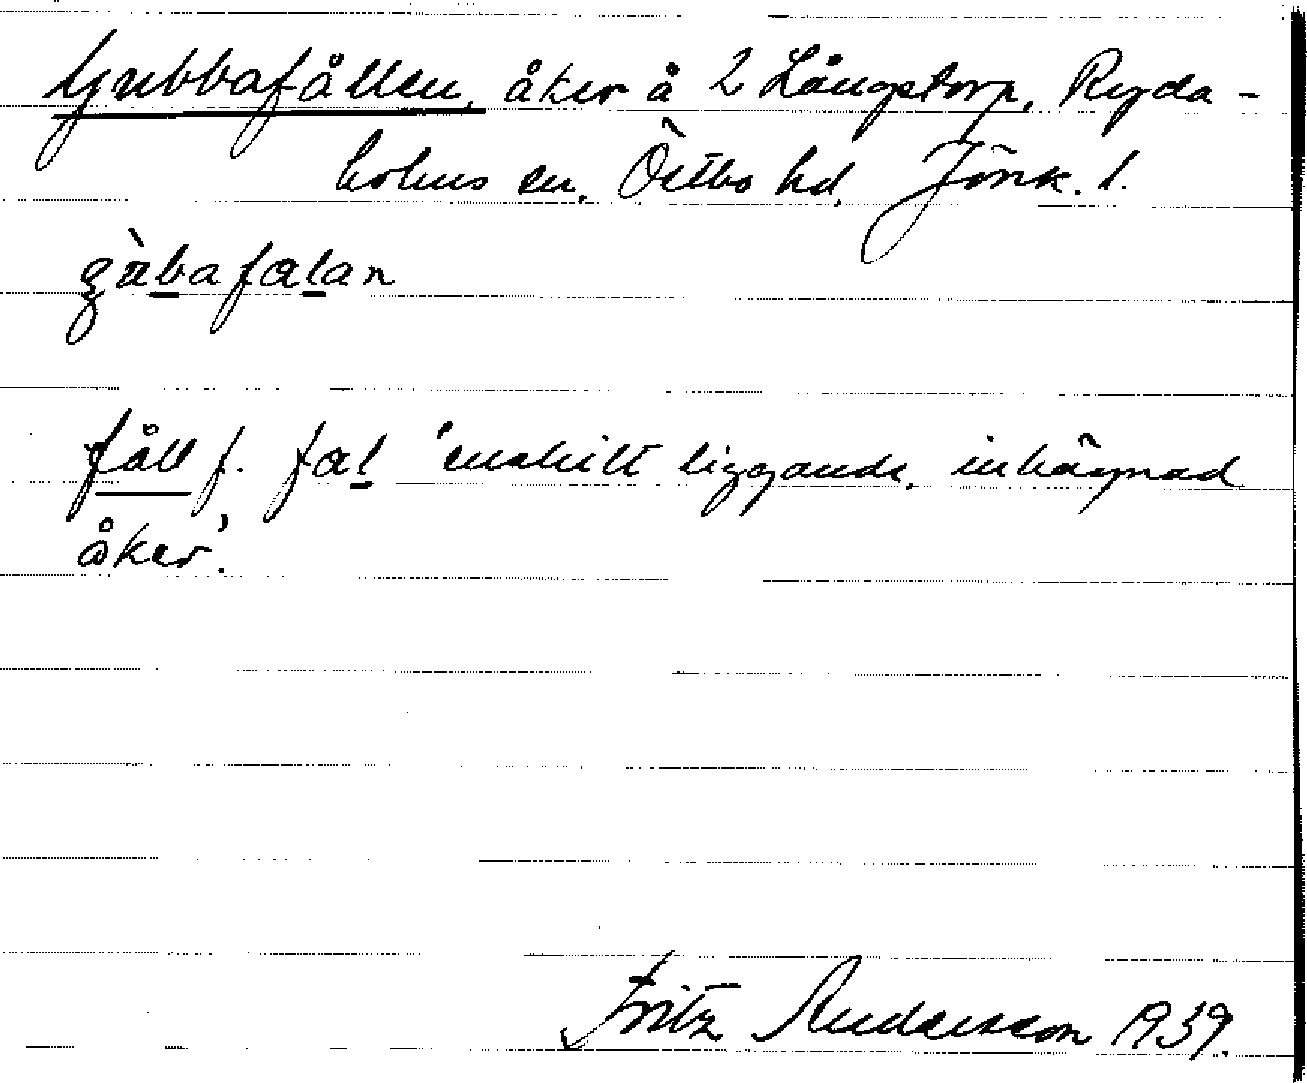 Gubbafållen, åker å 2 Långstorp, Ryda-
holms sn, Östbo hd, Jönk. l.
gùbafalan
fåll f. fal 'enskilt liggande, inhägnad
åker'.
Fritz Andersson 1939.